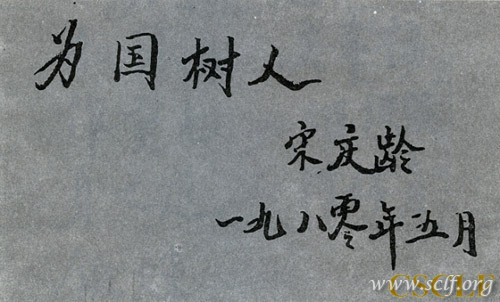 为国树人
宋庆龄
一九八零年五月
www.sclf.org
CSCLF